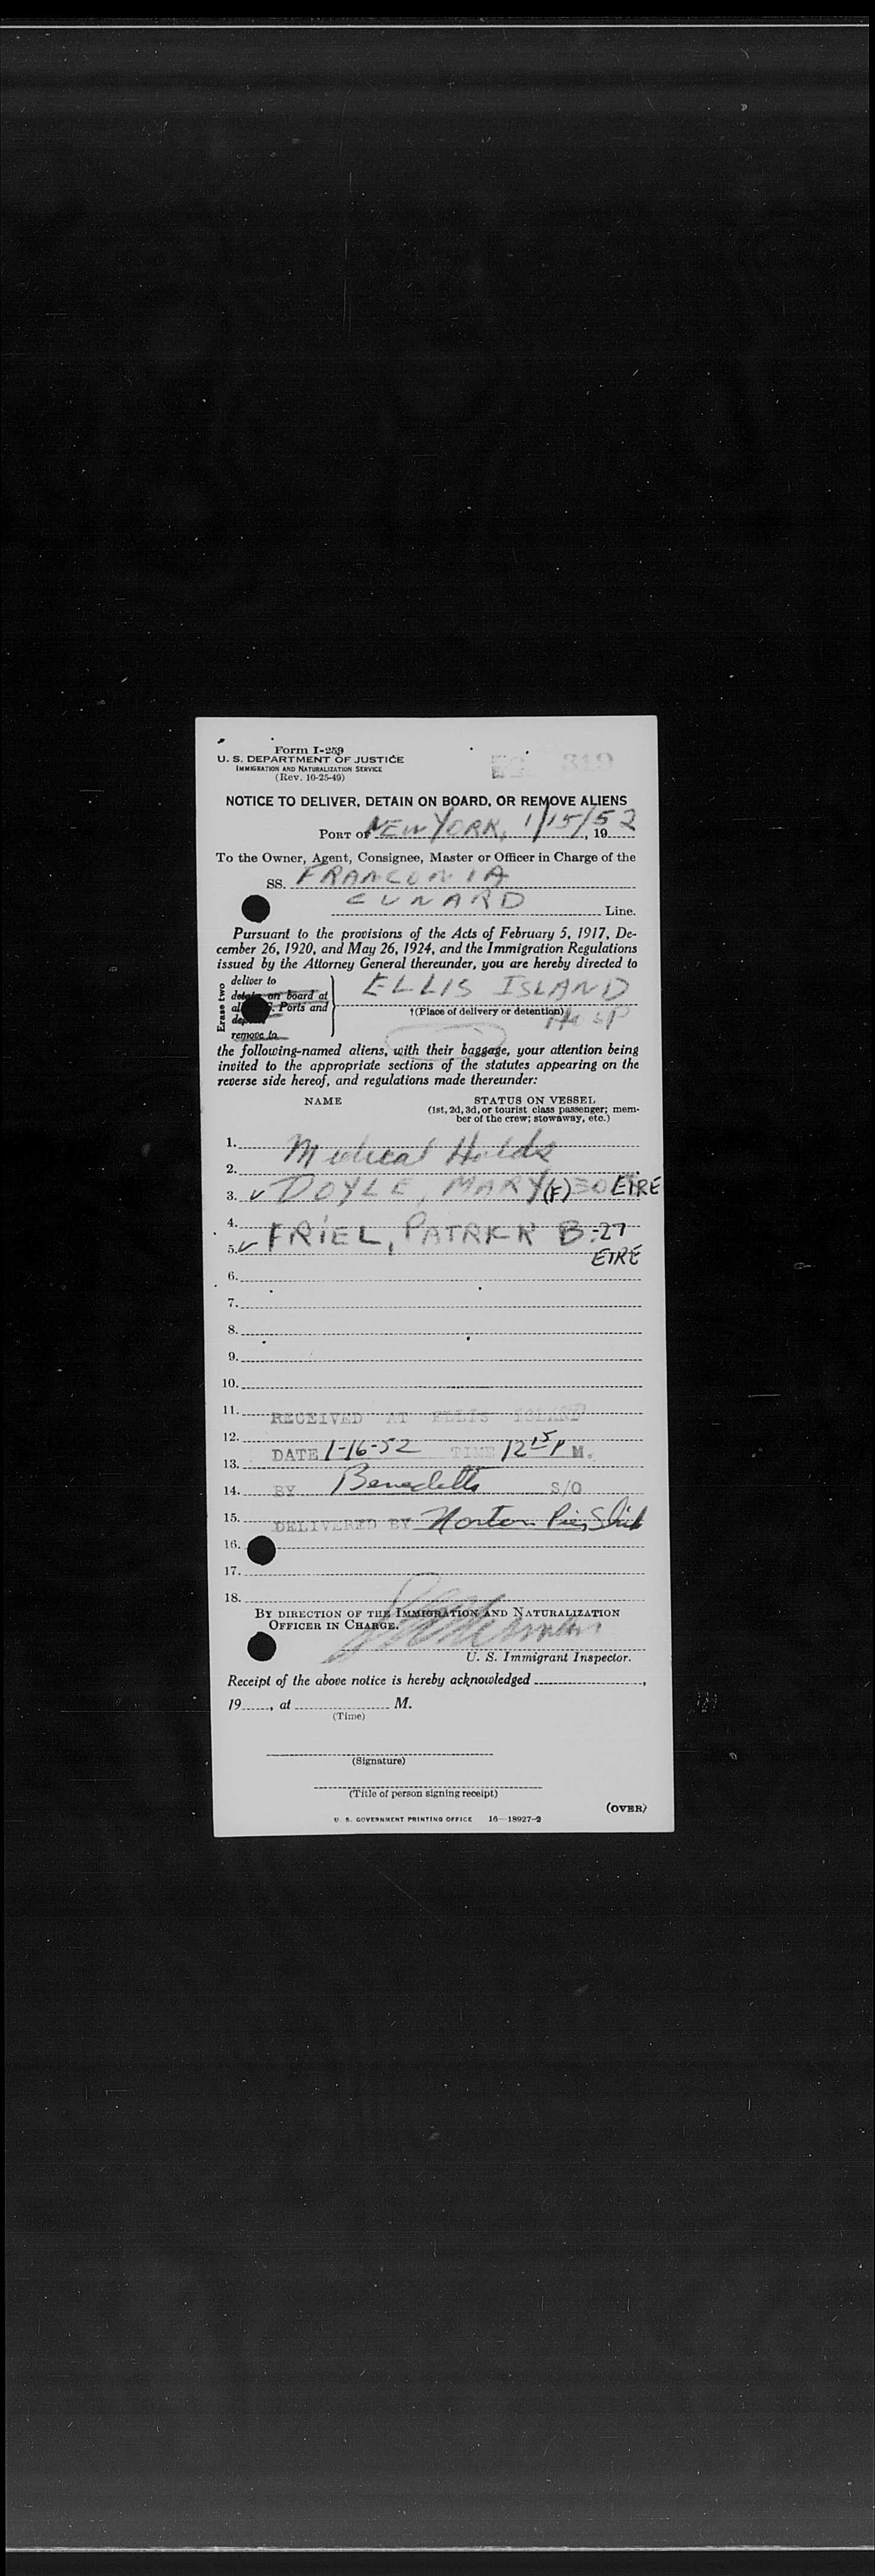 Form I-259
U. S. DEPARTMENT OF JUSTICE
IMMIGRATION AND NATURALIZATION SERVICE
(Rev. 10-25-49)
319
NOTICE TO DELIVER, DETAIN ON BOARD, OR REMOVE ALIENS
PORT OF NEW YORK, 1/15/52, 19
To the Owner, Agent, Consignee, Master or Officer in Charge of the
SS. FRANCONIA
CUNARD Line.
Pursuant to the provisions of the Acts of February 5, 1917, De-
cember 26, 1920, and May 26, 1924, and the Immigration Regulations
issued by the Attorney General thereunder, you are hereby directed to
Erase two
deliver to
detain on board at
Ports and
remove to
ELLIS ISLAND
†(Place of delivery or detention)
HOSP
the following-named aliens, with their baggage, your attention being
invited to the appropriate sections of the statutes appearing on the
reverse side hereof, and regulations made thereunder:
NAME
STATUS ON VESSEL
(1st, 2d, 3d, or tourist class passenger; mem-
ber of the crew; stowaway, etc.)
1. Medical Holds
2.
3. ✓ DOYLE, MARY (F) 30 EIRE
4.
5. ✓ FRIEL, PATRICK B. -27
EIRE
6.
7.
8.
9.
10.
11. RECEIVED AT ELLIS ISLAND
12.
DATE 1-16-52 TIME 12 15 P M.
13.
14. BY S/O
15. DELIVERED BY Norton
16.
17.
18.
BY DIRECTION OF THE IMMIGRATION AND NATURALIZATION
OFFICER IN CHARGE.
U. S. Immigrant Inspector.
Receipt of the above notice is hereby acknowledged ,
19 , at M.
(Time)
(Signature)
(Title of person signing receipt)
(OVER)
U. S. GOVERNMENT PRINTING OFFICE 16—18927-2